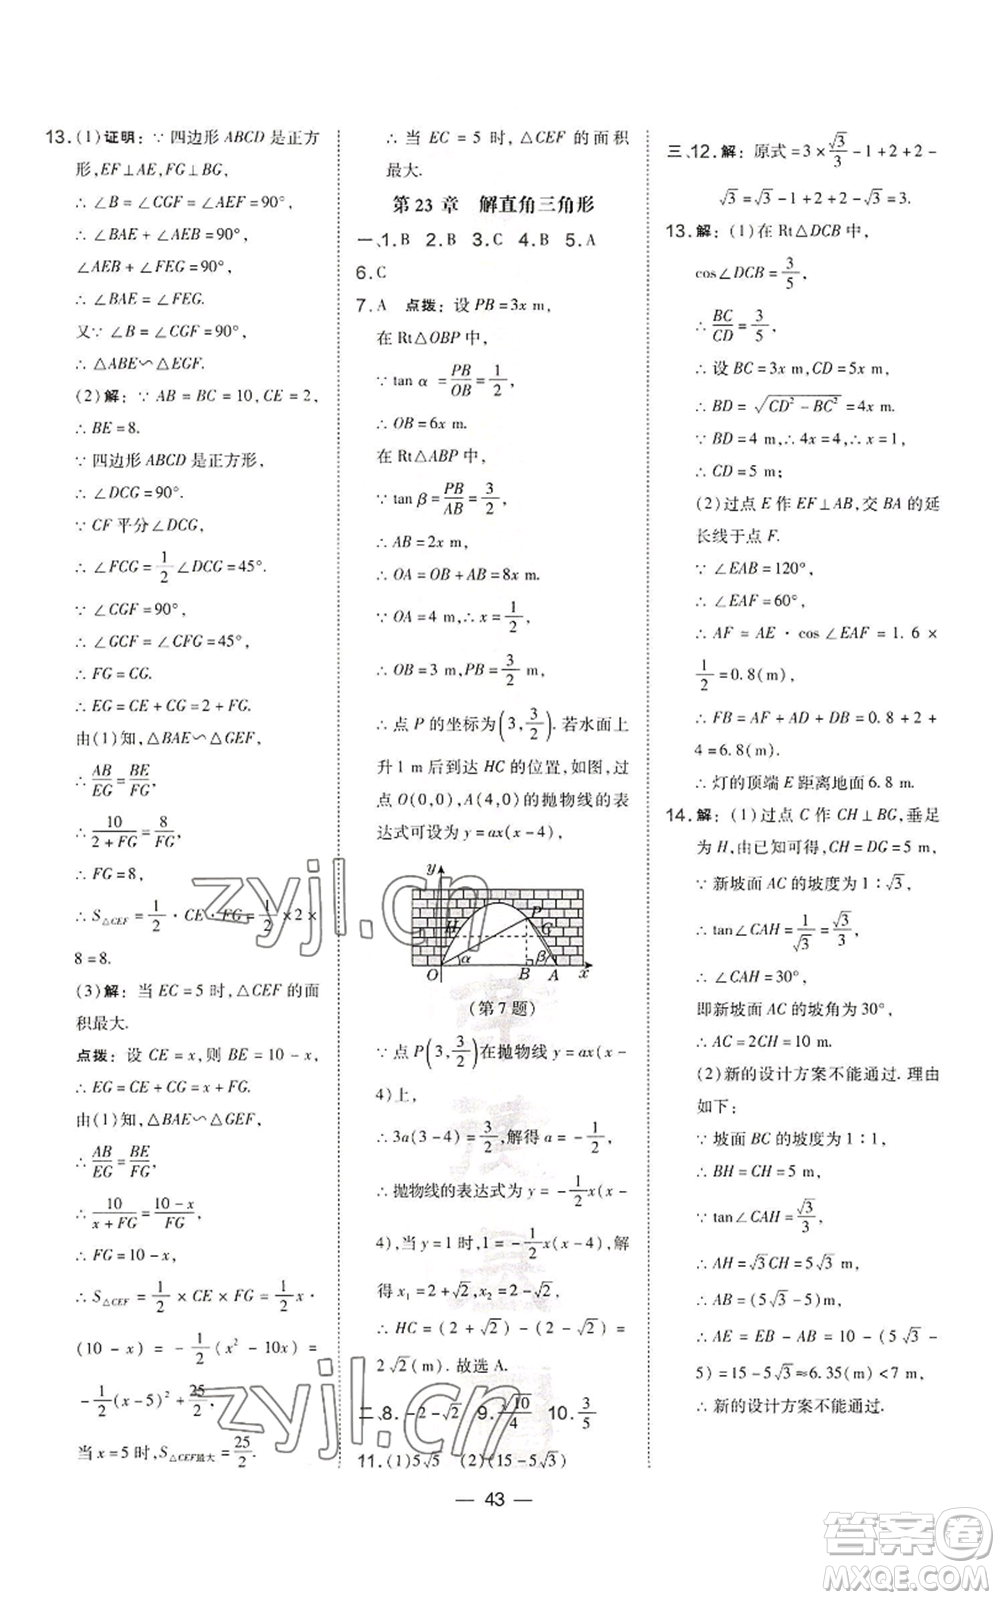 13. (1)证明：∵ 四边形 ABCD 是正方
形，EF⊥AE，FG⊥BG，
∴ ∠B = ∠CGF = ∠AEF = 90°，
∴ ∠BAE + ∠AEB = 90°，
∠AEB + ∠FEG = 90°，
∴ ∠BAE = ∠FEG.
又∵ ∠B = ∠CGF = 90°，
∴ △ABE∽△EGF.
(2)解：∵ AB = BC = 10，CE = 2，
∴ BE = 8.
∵ 四边形 ABCD 是正方形，
∴ ∠DCG = 90°.
∵ CF 平分∠DCG，
∴ ∠FCG = 1/2 ∠DCG = 45°.
∵ ∠CGF = 90°，
∴ ∠GCF = ∠CFG = 45°，
∴ FG = CG.
∴ EG = CE + CG = 2 + FG.
由(1)知，△BAE∽△GEF，
∴ AB/EG = BE/FG，
∴ 10/(2 + FG) = 8/FG，
∴ FG = 8，
∴ S△CEF = 1/2 · CE · FG = 1/2 × 2 ×
8 = 8.
(3)解：当 EC = 5 时，△CEF 的面
积最大.
点拨：设 CE = x，则 BE = 10 - x，
∴ EG = CE + CG = x + FG.
由(1)知，△BAE∽△GEF，
∴ AB/EG = BE/FG，
∴ 10/(x + FG) = (10 - x)/FG，
∴ FG = 10 - x，
∴ S△CEF = 1/2 × CE × FG = 1/2 x ·
(10 - x) = -1/2 (x² - 10x) =
-1/2 (x - 5)² + 25/2，
当 x = 5 时，S△CEF最大 = 25/2.
∴ 当 EC = 5 时，△CEF 的面积
最大.
第 23 章 解直角三角形
一、1. B 2. B 3. C 4. B 5. A
6. C
7. A 点拨：设 PB = 3x m，
在 Rt△OBP 中，
∵ tan α = PB/OB = 1/2，
∴ OB = 6x m.
在 Rt△ABP 中，
∵ tan β = PB/AB = 3/2，
∴ AB = 2x m，
∴ OA = OB + AB = 8x m.
∵ OA = 4 m，∴ x = 1/2，
∴ OB = 3 m，PB = 3/2 m，
∴ 点 P 的坐标为(3, 3/2). 若水面上
升 1 m 后到达 HC 的位置，如图，过
点 O(0,0)，A(4,0)的抛物线的表
达式可设为 y = ax(x - 4)，
y
H P
1 C
O α B β A x
(第 7 题)
∵ 点 P(3, 3/2)在抛物线 y = ax(x -
4)上，
∴ 3a(3 - 4) = 3/2，解得 a = -1/2，
∴ 抛物线的表达式为 y = -1/2 x(x -
4)，当 y = 1 时，-1/2 x(x - 4) = 1，解
得 x₁ = 2 + √2，x₂ = 2 - √2，
∴ HC = (2 + √2) - (2 - √2) =
2√2 (m). 故选 A.
二、8. -2 - √2 9. √10/4 10. 3/5
11. (1)5√5 (2)(15 - 5√3)
三、12. 解：原式 = 3 × √3/3 - 1 + 2 + 2 -
√3 = √3 - 1 + 2 + 2 - √3 = 3.
13. 解：(1)在 Rt△DCB 中，
cos∠DCB = 3/5，
∴ BC/CD = 3/5，
∴ 设 BC = 3x m，CD = 5x m，
∴ BD = √(CD² - BC²) = 4x m，
∵ BD = 4 m，∴ 4x = 4，∴ x = 1，
∴ CD = 5 m；
(2)过点 E 作 EF⊥AB，交 BA 的延
长线于点 F.
∵ ∠EAB = 120°，
∴ ∠EAF = 60°，
∴ AF = AE · cos∠EAF = 1.6 ×
1/2 = 0.8(m)，
∴ FB = AF + AD + DB = 0.8 + 2 +
4 = 6.8(m).
∴ 灯的顶端 E 距离地面 6.8 m.
14. 解：(1)过点 C 作 CH⊥BG，垂足
为 H，由已知可得，CH = DG = 5 m，
∵ 新坡面 AC 的坡度为 1∶√3，
∴ tan∠CAH = 1/√3 = √3/3，
∴ ∠CAH = 30°，
即新坡面 AC 的坡角为 30°，
∴ AC = 2CH = 10 m.
(2)新的设计方案不能通过. 理由
如下：
∵ 坡面 BC 的坡度为 1∶1，
∴ BH = CH = 5 m，
∵ tan∠CAH = √3/3，
∴ AH = √3CH = 5√3 m，
∴ AB = (5√3 - 5)m，
∴ AE = EB - AB = 10 - (5√3 -
5) = 15 - 5√3 ≈ 6.35(m) < 7 m，
∴ 新的设计方案不能通过.
— 43 —
zyjl.cn
zyjl.cn
答案卷
MXQE.COM